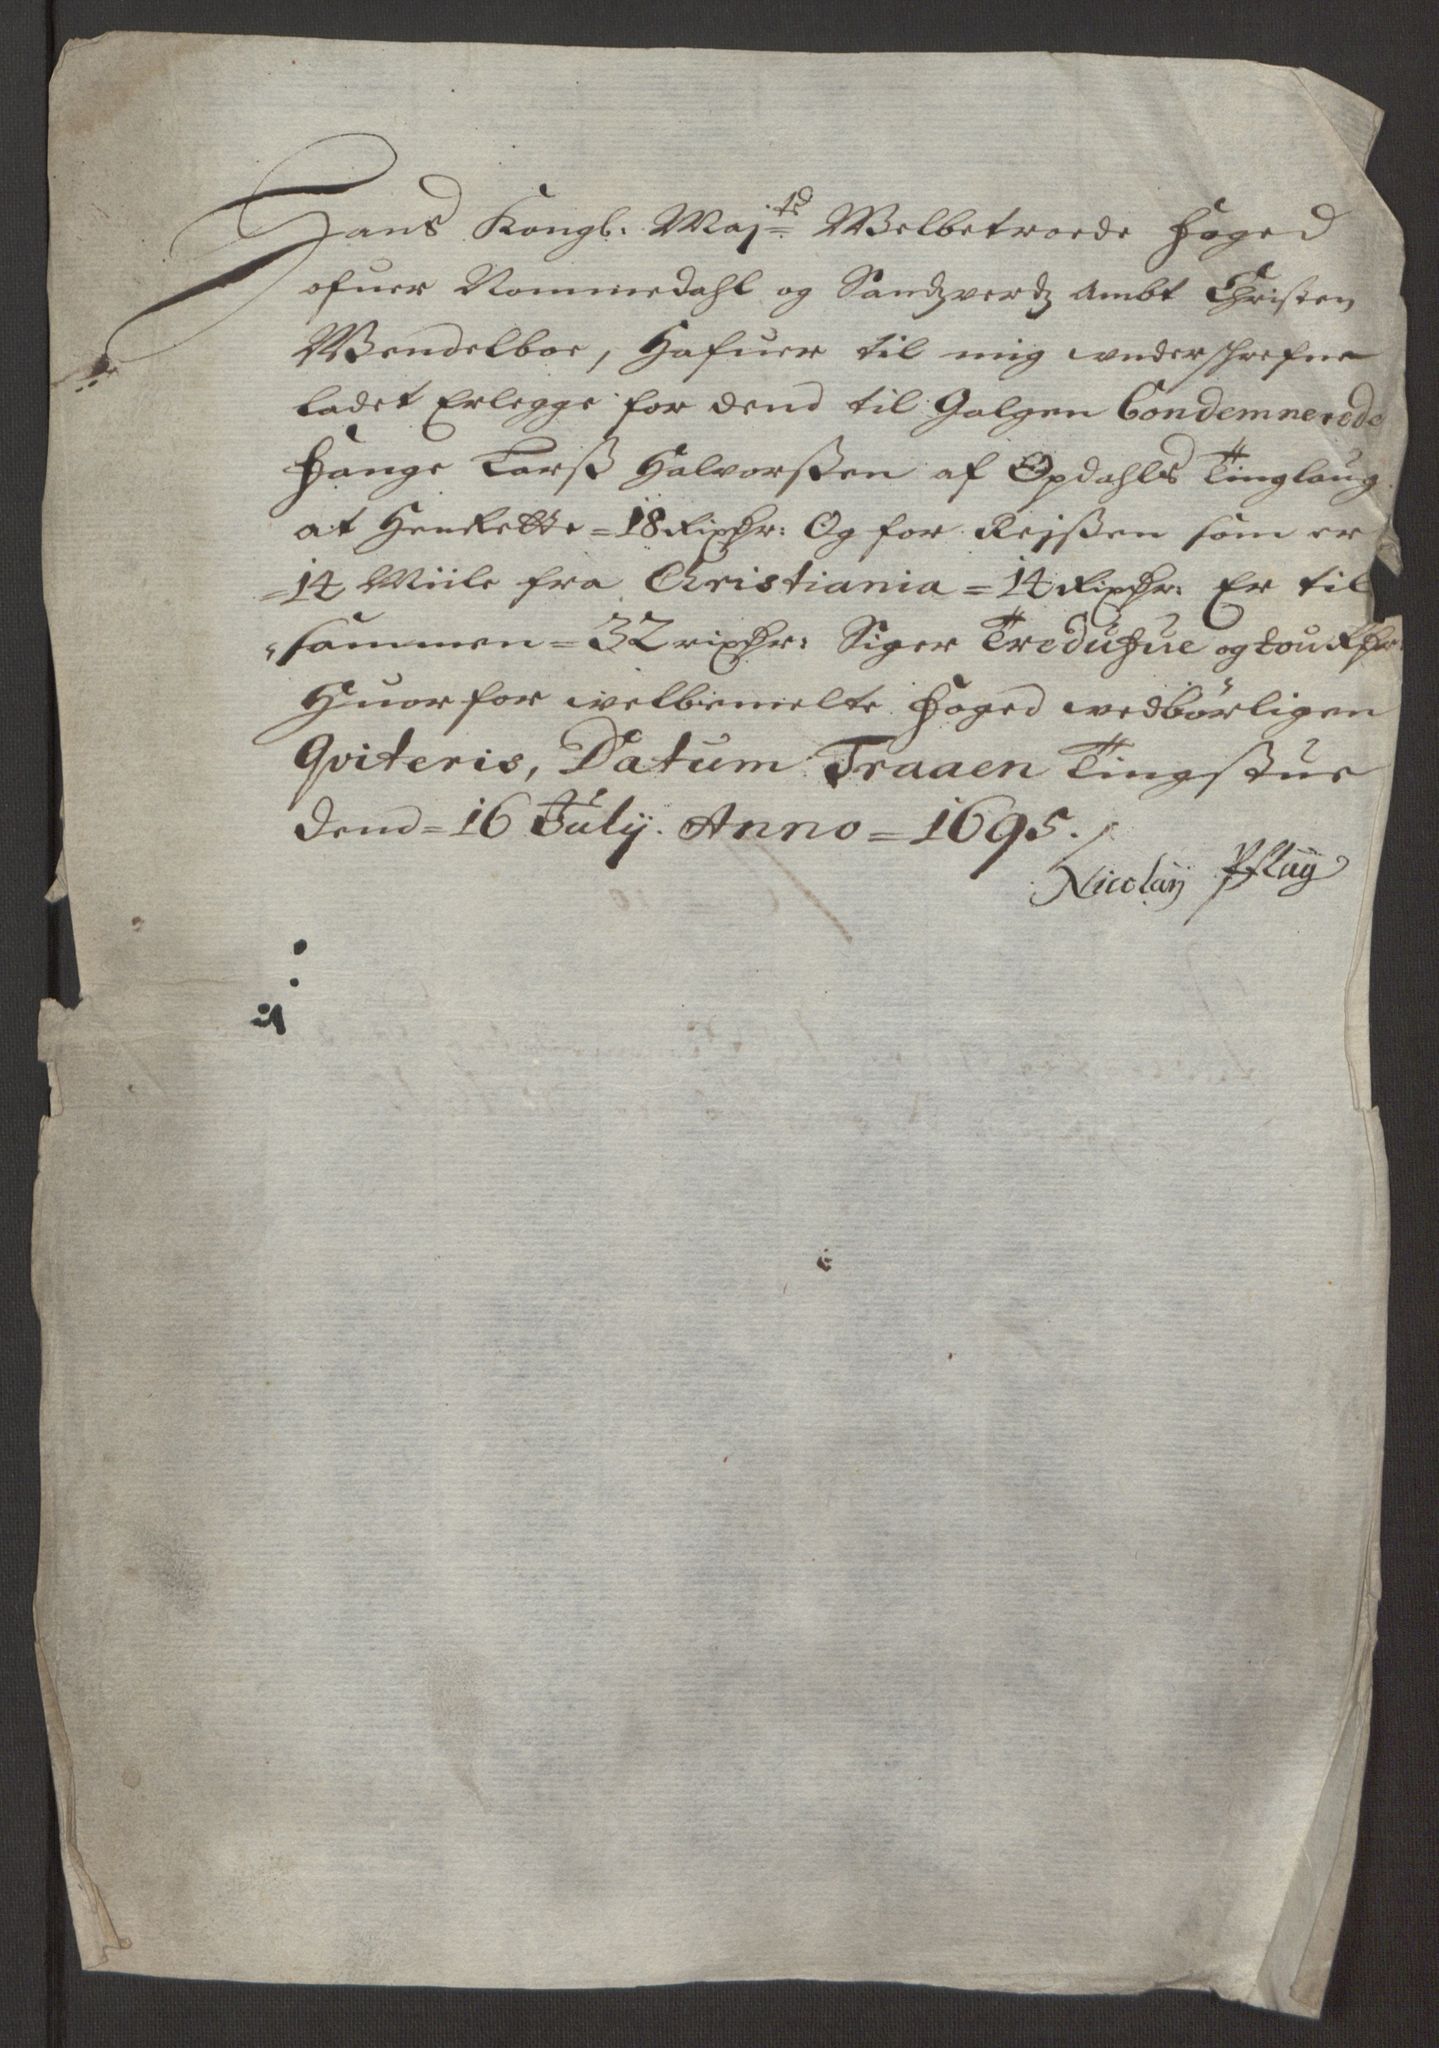 Hans Kongl: Maj:ts Welbetroede Foged
ofuer Nommedahl og Sandzverdz Ambt Christen
Wendelboe, Hafuer til mig underschrefne
Ladet Erlegge for dend til Galgen Condemnerede
Fange Larß Halvorßen af Opdahls Tinglaug
at Henrette = 18 Rixdr: Og for Rejßen som er
= 14 Miile fra Christiania = 14 Rixdr: Er til
sammen = 32 rixdr: Siger Tredúfue og tou Rdr:
Huorfor welbemelte Foged wedbörligen
Qviteris, Datum Traaen Tingstue
dend = 16 July. Anno = 1695.
Nicolaÿ Pflug